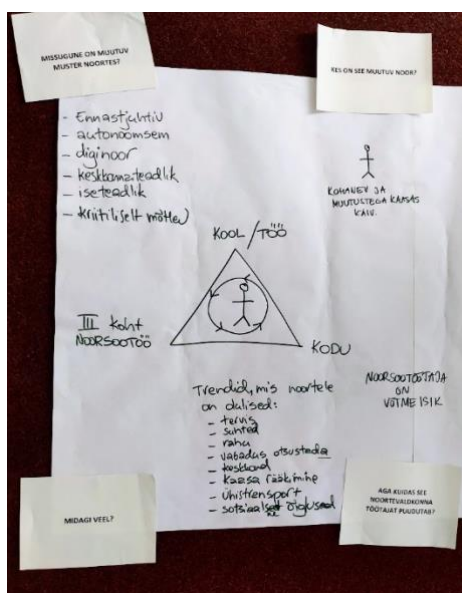 MISSUGUNE ON MUUTUV
MUSTER NOORTES?
KES ON SEE MUUTUV NOOR?
- Ennastjuhtiv
- autonoomsem
- diginoor
- keskkonnateadlik
- iseteadlik
- kriitiliselt mõtlev
KOHANEV JA
MUUTUSTEGA KAASAS
KÄIV.
KOOL / TÖÖ
III koht
NOORSOOTÖÖ
KODU
Trendid, mis noortele
on olulised:
- tervis
- suhted
- raha
- vabadus otsustada
- keskkond
- kaasa rääkimine
- ühistransport
- sotsiaalne õiglus
NOORSOOTÖÖTAJA
ON
VÕTMEISIK
MIDAGI VEEL?
AGA KUIDAS SEE
NOORTEVALDKONNA
TÖÖTAJAT PUUDUTAB?